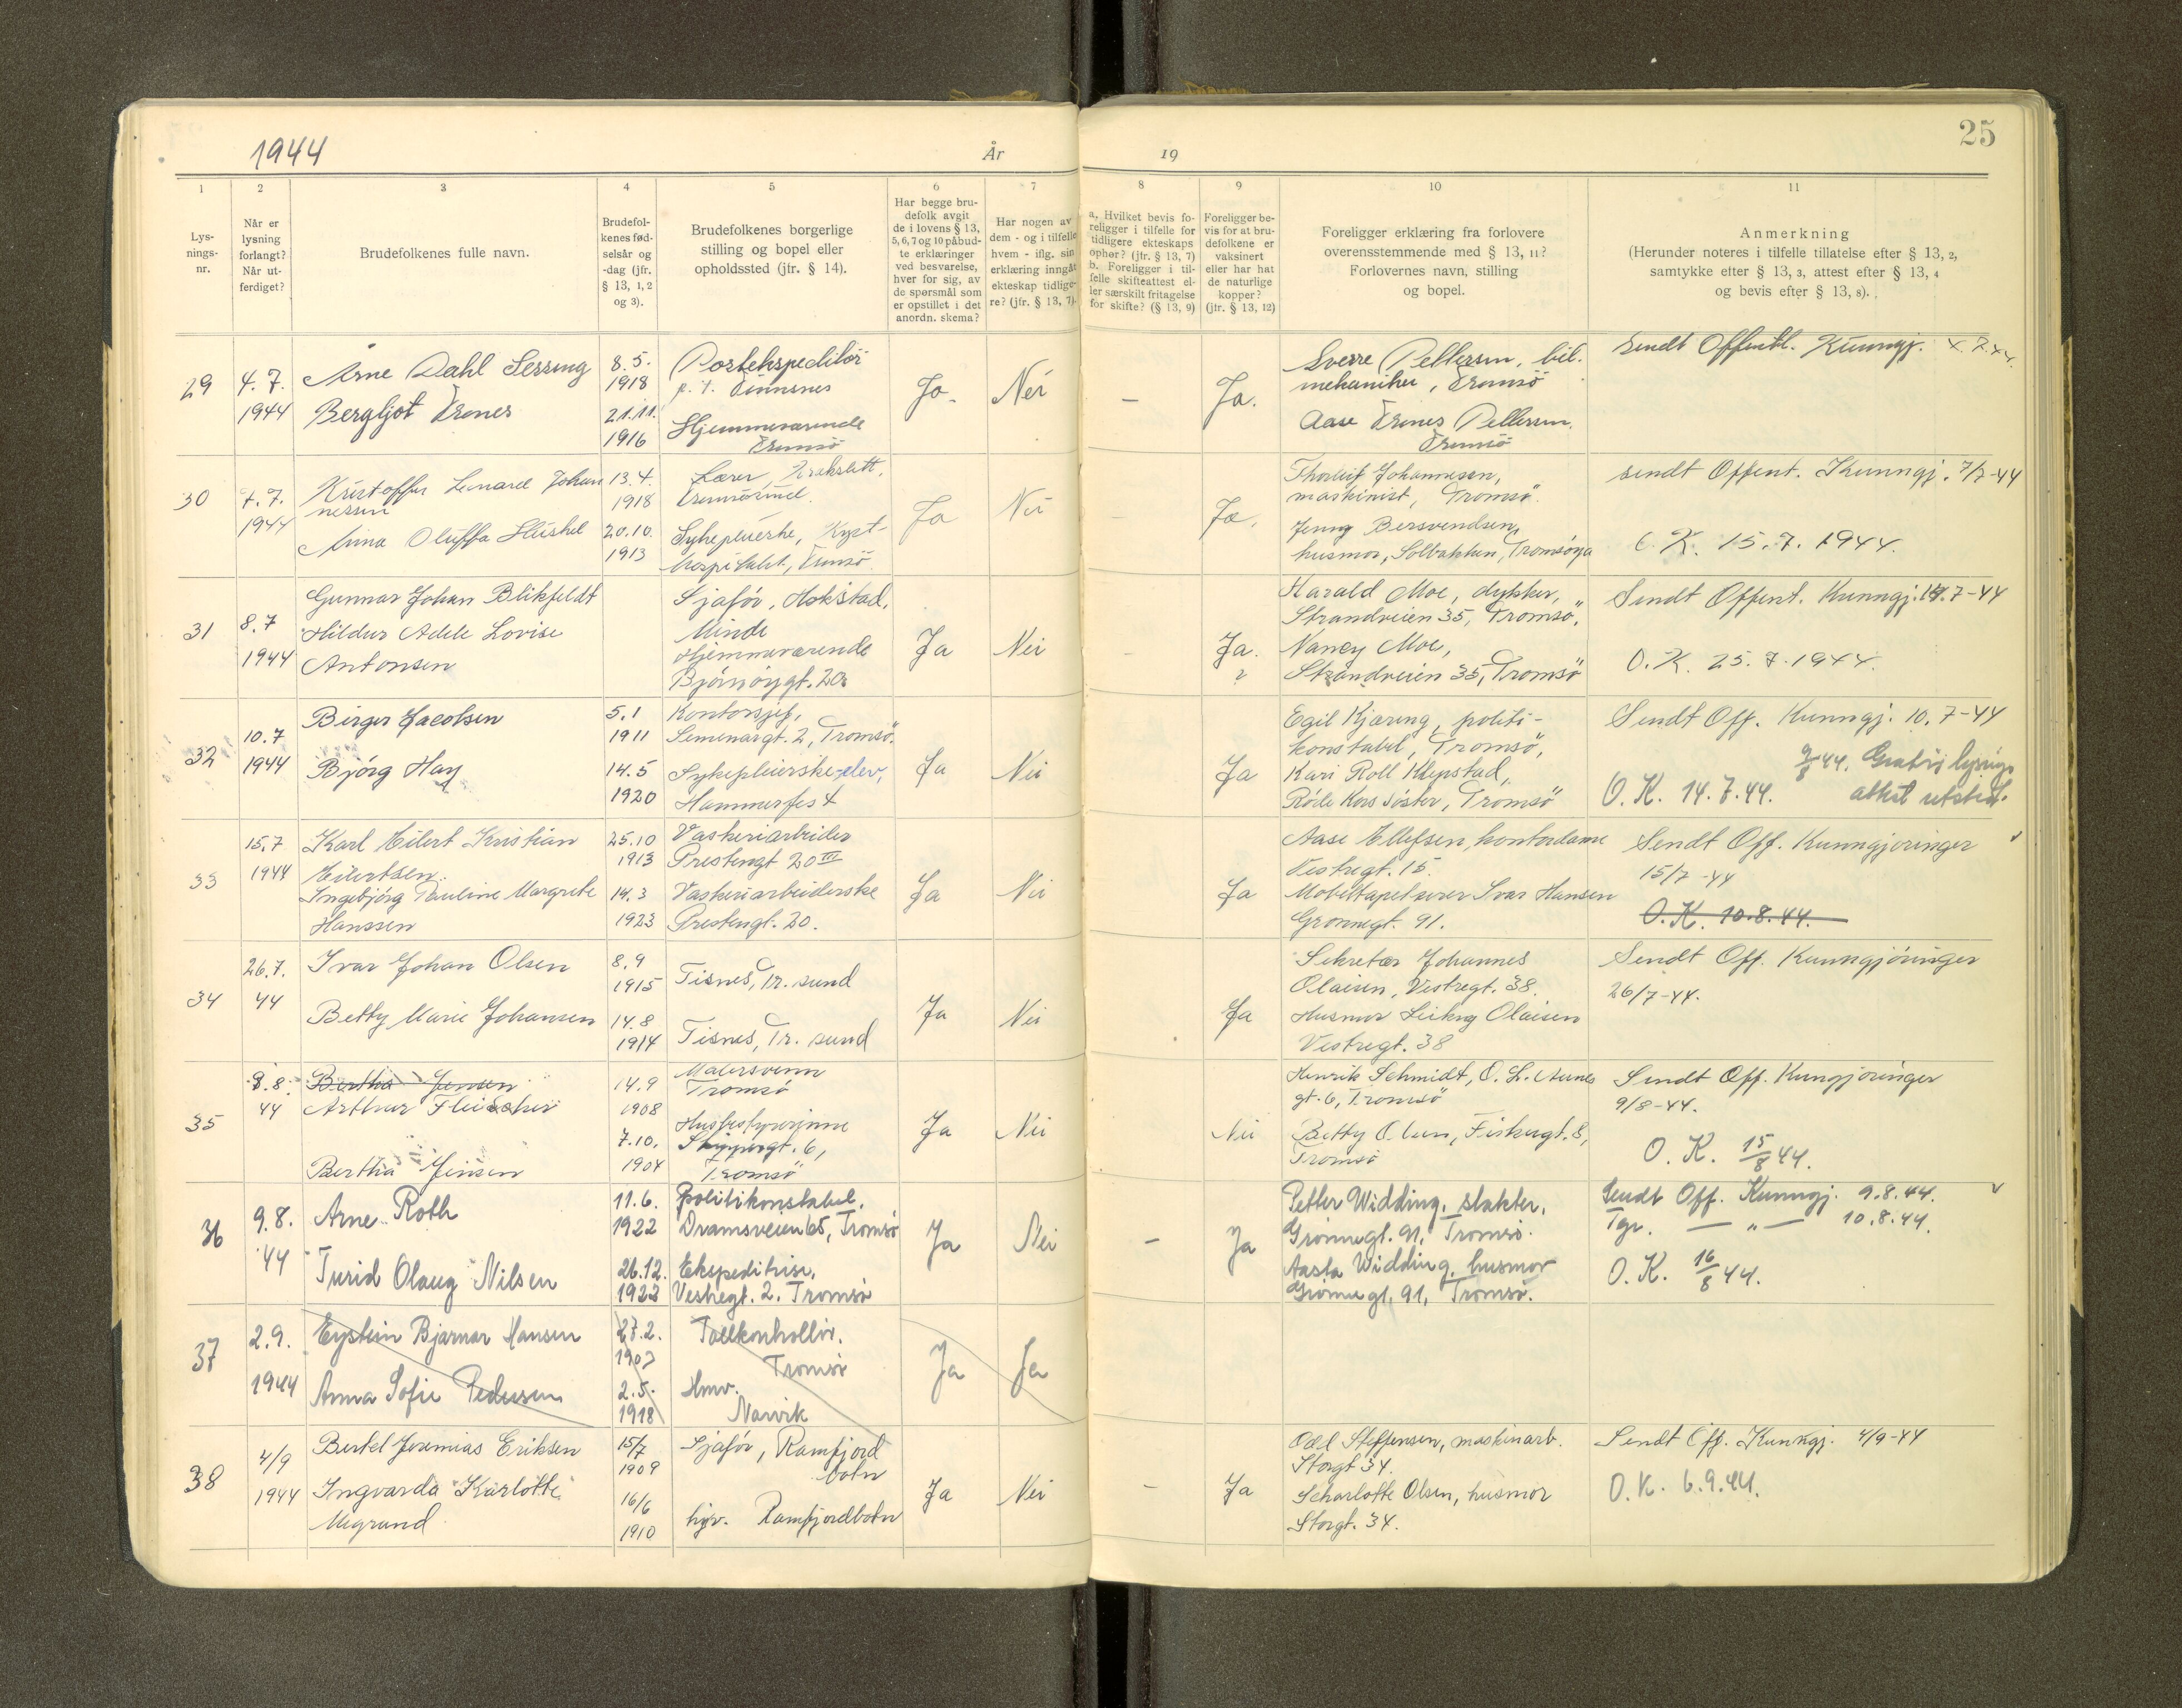 1944
År
19
25
1
2
3
4
5
6
7
8
9
10
11
Lys-
nings-
nr.
Når er
lysning
forlangt?
Når ut-
ferdiget?
Brudefolkenes fulle navn.
Brudefol-
kenes fød-
selsår og
-dag (jfr.
§ 13, 1, 2
og 3).
Brudefolkenes borgerlige
stilling og bopel eller
opholdssted (jfr. § 14).
Har begge bru-
defolk avgit
de i lovens § 13,
5, 6, 7 og 10 påbud-
te erklæringer
ved besvarelse,
hver for sig, av
de spørsmål som
er opstillet i det
anordn. skema?
Har nogen av
dem - og i tilfelle
hvem - iflg. sin
erklæring inngåt
ekteskap tidlige-
re? (jfr. § 13, 7).
a. Hvilket bevis fo-
religger i tilfelle for
tidligere ekteskaps
ophør? (jfr. § 13, 7)
b. Foreligger i til-
felle skifteattest el-
ler særskilt fritagelse
for skifte? (§ 13, 9)
Foreligger be-
vis for at bru-
defolkene er
vaksinert
eller har hat
de naturlige
kopper?
(jfr. § 13, 12)
Foreligger erklæring fra forlovere
overensstemmende med § 13, 11?
Forlovernes navn, stilling
og bopel.
Anmerkning
(Herunder noteres i tilfelle tillatelse efter § 13, 2,
samtykke efter § 13, 3, attest efter § 13, 4
og bevis efter § 13, 8).
29
4. 7.
1944
Arne Dahl Sessing
Bergljot Trones
8. 5.
1918
21.11.
1916
Postekspeditör
p. t. Finnsnes
Hjemmeværende
Tromsö
Ja.
Nei
–
Ja.
Sverre Pettersen, bil.
mekaniker, Tromsö
Aase Trones Pettersen.
Tromsö
Sendt Offentl. Kunngj. 4.7.44.
30
7. 7.
1944
Kristoffer Lenard Johan
nessen
Anna Oluffa
13. 4.
1918
20.10.
1913
Lærer,
Tromsösund.
Sykepleierske, Kyst-
hospitalet, Tromsö.
Ja
Nei
Ja.
Thorleif Johannesen,
maskinist, Tromsö.
Jenny Bersvendsen,
husmor, Solbakken, Tromsöya
sendt Offent. Kunngj. 7/7-44
O. K. 15. 7. 1944.
31
8. 7
1944
Gunnar Johan Blikfeldt
Hildur Adele Lovise
Antonsen
Sjafór, Mokstad,
Minde
Hjemmeværende
Bjórnóygt. 20.
Ja
Nei
Ja.
?
Harald Moe, dykker,
Strandveien 35, Tromsö,
Nancy Moe,
Strandveien 35, Tromsö
Sendt Offent. Kunngj. 14.7-44
O. K. 25. 7. 1944.
32
10.7
1944
Birger Jacobsen
Bjórg Hay
5.1
1911
14.5
1920
Kontorsjef,
Semenargt. 2, Tromsö.
Sykepleierske-elev,
Hammerfest
Ja
Nei
Ja
Egil Kjæreng, politi-
konstabel, Tromsö,
Kari Roll Klepstad,
Röde Kors söster, Tromsö
Sendt Off. Kunngj. 10. 7-44
9/8 44. Gratis lysings
O. K. 14. 7. 44. attest utsted.
33
15.7
1944
Karl Eilert Kristian
Eilertsen.
Ingebjórg Pauline Margrete
Hanssen
25.10
1913
14.3
1923
Vaskeriarbeider
Prestengt 20 III
Vaskeriarbeiderske
Prestengt. 20.
Ja
Nei
Ja
Aase Ellefsen, kontordame
Vestregt. 15.
Mobeltapetserer Ivar Hansen
Grönnegt. 91.
Sendt Off. Kunngjøringer
15/7 -44
O. K. 10. 8. 44.
34
26.7.
44
Ivar Johan Olsen
Betty Marie Johansen
8.9
1915
14.8
1914
Tisnes, Tr. sund
Tisnes, Tr. sund
Ja
Nei
Ja
Sekretær Johannes
Olaisen, Vestregt. 38.
Husmor Olaisen
Vestregt. 38
Sendt Off. Kunngjöringer
26/7-44.
35
9.8.
44
Bertha Jensen
Arthur Fleischer
Bertha Jensen
14.9
1908
7.10.
1904
Malersvenn
Tromsö
Husbestyrerinne
Skippergt. 6,
Tromsö
Ja
Nei
Nei
Henrik Schmidt, O. L. Aunes
gt. 6, Tromsö
Betty Olsen, Fiskergt. 8,
Tromsö
Sendt Off. Kungjoringer
9/8-44.
O. K. 15/8 44.
36
9.8.
44
Arne Roth
Turid Olaug Nilsen
11.6.
1922
26.12.
1922
Politikonstabel.
Dramsveien 65, Tromsö
Ekspeditrise.
Vestregt. 2. Tromsö
Ja
Nei
–
Ja
Petter Widding, slakter.
Grönnegt. 91, Tromsö.
Aasta Widding, husmor
Grönnegt. 91, Tromsö.
Sendt Off. Kunngj. 9.8.44.
Tgr. — „ — 10.8.44.
O. K. 16/8 44.
37
2.9.
1944
Eystein Bjarnar Hansen
Anna Sofie Pedersen
27.2.
1907
2.5.
1918
Tollkontrollör.
Tromsö
Hmv.
Narvik
Ja
Ja
38
4/9
1944
Bertel Jeremias Eriksen
Ingvarda Karlotte
Megrund
15/7
1909
16/6
1910
Sjafór, Ramfjord
botn
hjv. Ramfjordbotn
Ja
Nei
–
Ja
Odd Steffensen, maskinarb.
Storgt 34.
Scharlotte Olsen, husmor
Storgt. 34.
Sendt Off. Kunngj. 4/9-44
O. K. 6. 9. 44.